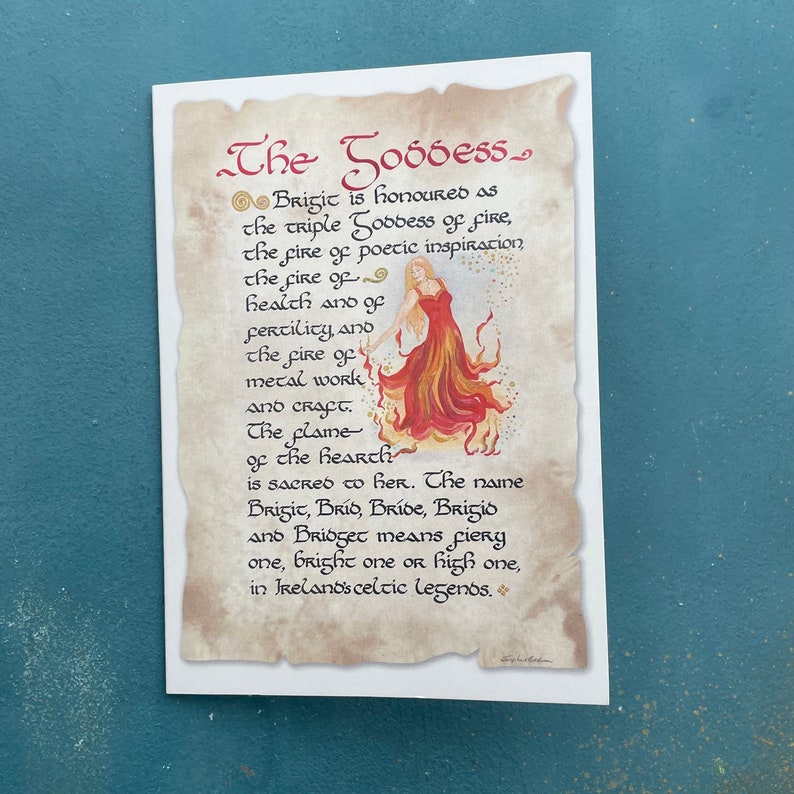 The Goddess
Brigit is honoured as
the triple Goddess of fire,
the fire of poetic inspiration,
the fire of
health and of
fertility, and
the fire of
metal work
and craft.
The flame
of the hearth
is sacred to her. The name
Brigit, Bríd, Bríde, Brigid
and Bridget means fiery
one, bright one or high one,
in Ireland's celtic legends.